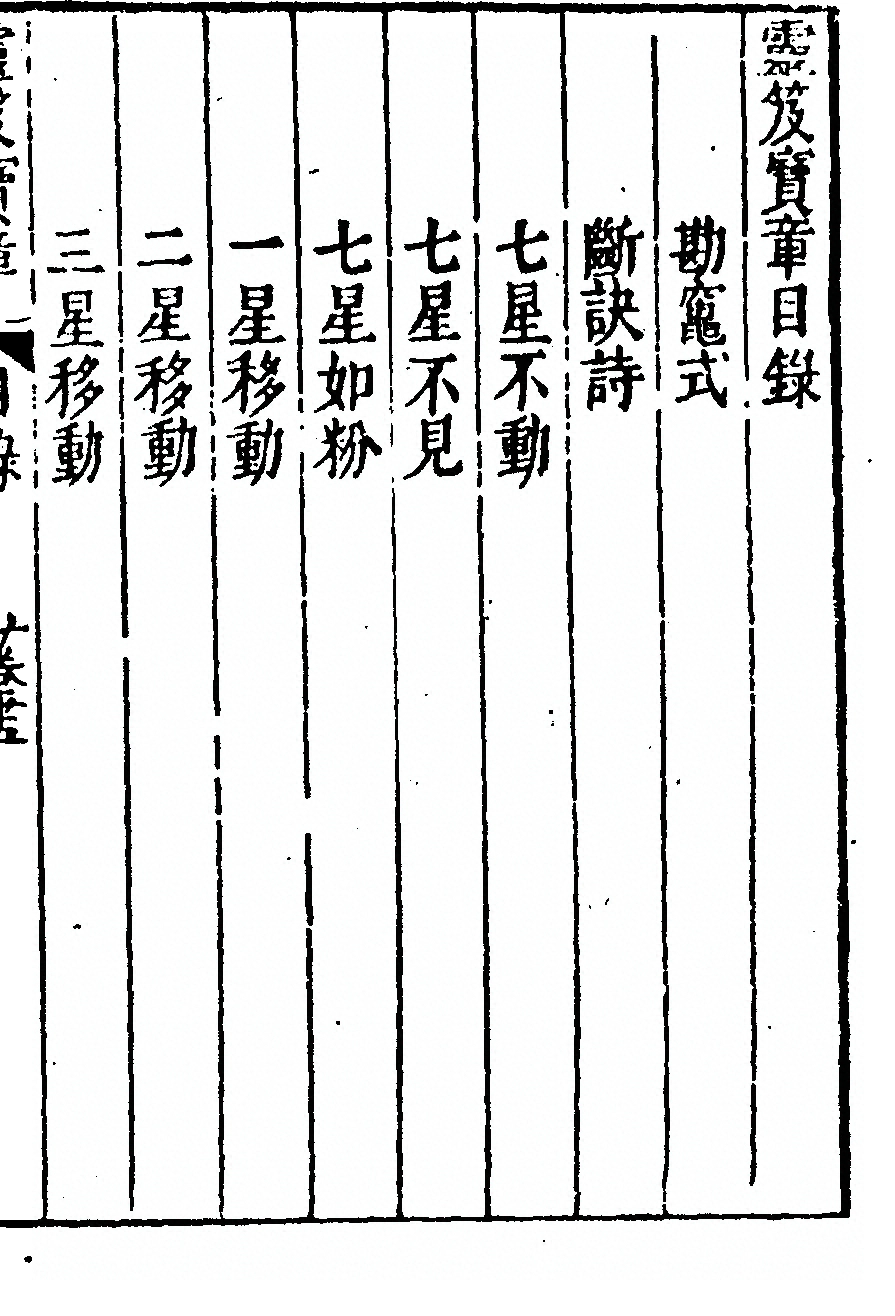 靈笈寶章目錄
勘竈式
斷訣詩
七星不動
七星不見
七星如粉
一星移動
二星移動
三星移動
靈笈寶章
目錄